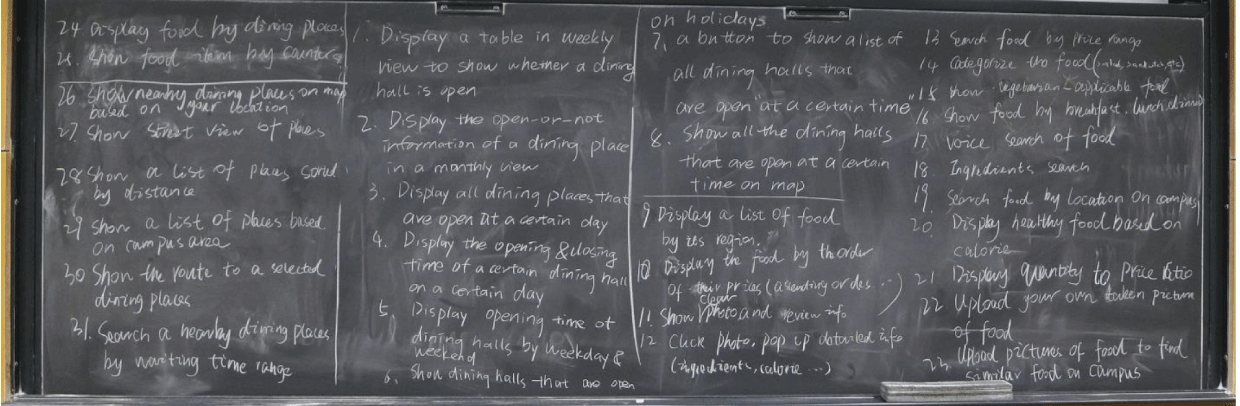 24 Display food by dining places
25. Show food item by counters
26 Show nearby dining places on map
based on your location
27 Show street view of places
28 Show a list of places sorted
by distance
29 Show a list of places based
on campus area
30 Show the route to a selected
dining places
31. Search a nearby dining places
by waiting time range
1. Display a table in weekly
view to show whether a dining
hall is open
2. Display the open-or-not
information of a dining place
in a monthly view
3. Display all dining places that
are open at a certain day
4. Display the opening & closing
time of a certain dining hall
on a certain day
5. Display opening time of
dining halls by weekday &
weekend
6. Show dining halls that are open
on holidays
7. a button to show a list of
all dining halls that
are open at a certain time
8. Show all the dining halls
that are open at a certain
time on map
9 Display a list of food
by its region.
10 Display the food by th order
of their prices (ascending or des ...)
11. Show clear photo and review info
12 Click photo, pop up detailed info
(ingredients, calorie ...)
13 Search food by price range
14 Categorize the food
15 show vegetarian-applicable food
16 Show food by breakfast, lunch, dinner
17. Voice search of food
18. Ingredients search
19. Search food by location on campus
20. Display healthy food based on
calorie
21 Display quantity to price ratio
22 Upload your own taken picture
of food
23. Upload pictures of food to find
similar food on campus